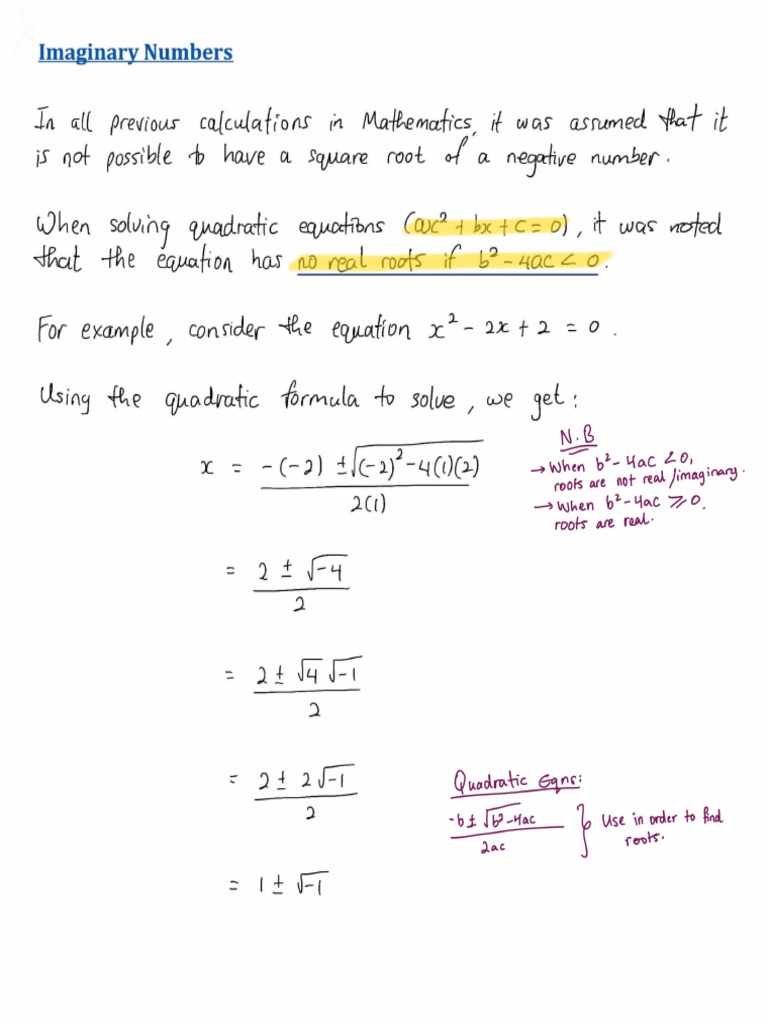 Imaginary Numbers
In all previous calculations in Mathematics, it was assumed that it
is not possible to have a square root of a negative number.
When solving quadratic equations (ax² + bx + c = 0), it was noted
that the equation has no real roots if b² - 4ac < 0.
For example, consider the equation x² - 2x + 2 = 0.
Using the quadratic formula to solve, we get:
x = -(-2) ± √(-2)² - 4(1)(2)
2(1)
N.B
→ When b² - 4ac < 0,
roots are not real/imaginary.
→ When b² - 4ac ⩾ 0.
roots are real.
= 2 ± √-4
2
= 2 ± √4 √-1
2
= 2 ± 2√-1
2
Quadratic Eqns:
-b ± √b² - 4ac
2ac
} Use in order to find
roots.
= 1 ± √-1